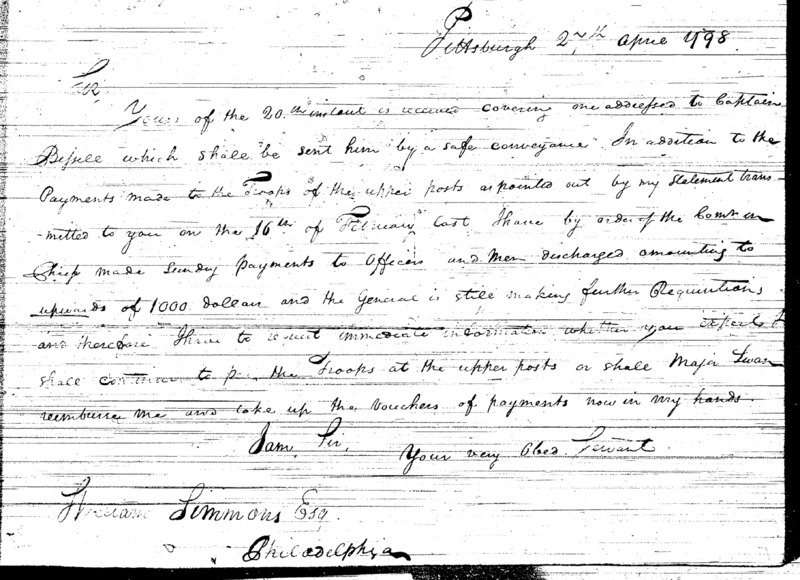 Pittsburgh 27th April 1798
Sir,
Yours of the 20th instant is received covering one addressed to Captain
Bissell which shall be sent him by a safe conveyance. In addition to the
Payments made to the Troops of the upper posts as pointed out by my Statement trans-
-mitted to you on the 16th of February last I have by order of the Comr in
Chief made Sundry payments to Officers and Men discharged amounting to
upwards of 1000 dollars and the General is still making further Requisitions
and therefore I have to request immediate information whether you expect I
shall continue to pay the Troops at the upper posts or shall Major Swan
reimburse me and take up the Vouchers of payments now in my hands.
I am, Sir,
Your very Obed. Servant
William Simmons Esq
Philadelphia